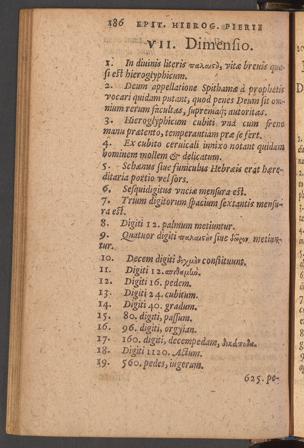 186 EPIT. HIEROG. PIERII
VII. Dimensio.
1. In diuinis literis παλαιςὴ, vitæ breuis qua-
si est hieroglyphicum.
2. Deum appellatione Spithamæ à prophetis
vocari quidam putant, quod penes Deum sit om-
nium rerum facultas, supremaq; autoritas.
3. Hieroglyphicum cubiti vnà cum freno
manu prætento, temperantiam præ se fert.
4. Ex cubito ceruicali innixo notant quidam
hominem mollem & delicatum.
5. Schœnus siue funiculus Hebræis erat hære-
ditaria portio vel sors.
6. Sesquidigitus vnciæ mensura est.
7. Trium digitorum spacium sextantis mensu-
ra est.
8. Digiti 12. palmum metiuntur.
9. Quatuor digiti παλαιςὴν siue δῶρον metiun-
tur.
10. Decem digiti διχμὰν constituunt.
11. Digiti 12. σπιθαμὴν.
12. Digiti 16. pedem.
13. Digiti 24. cubitum.
14. Digiti 40. gradum.
15. 80. digiti, passum.
16. 96. digiti, orgyian.
17. 160. digiti, decempedam, δεκάποδα.
18. Digiti 1120. Actum.
19. 560. pedes, iugerum.
625. pe-